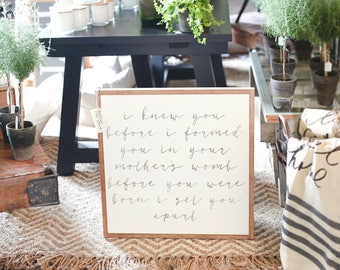 i knew you
before i formed
you in your
mother's womb
before you were
born i set you
apart